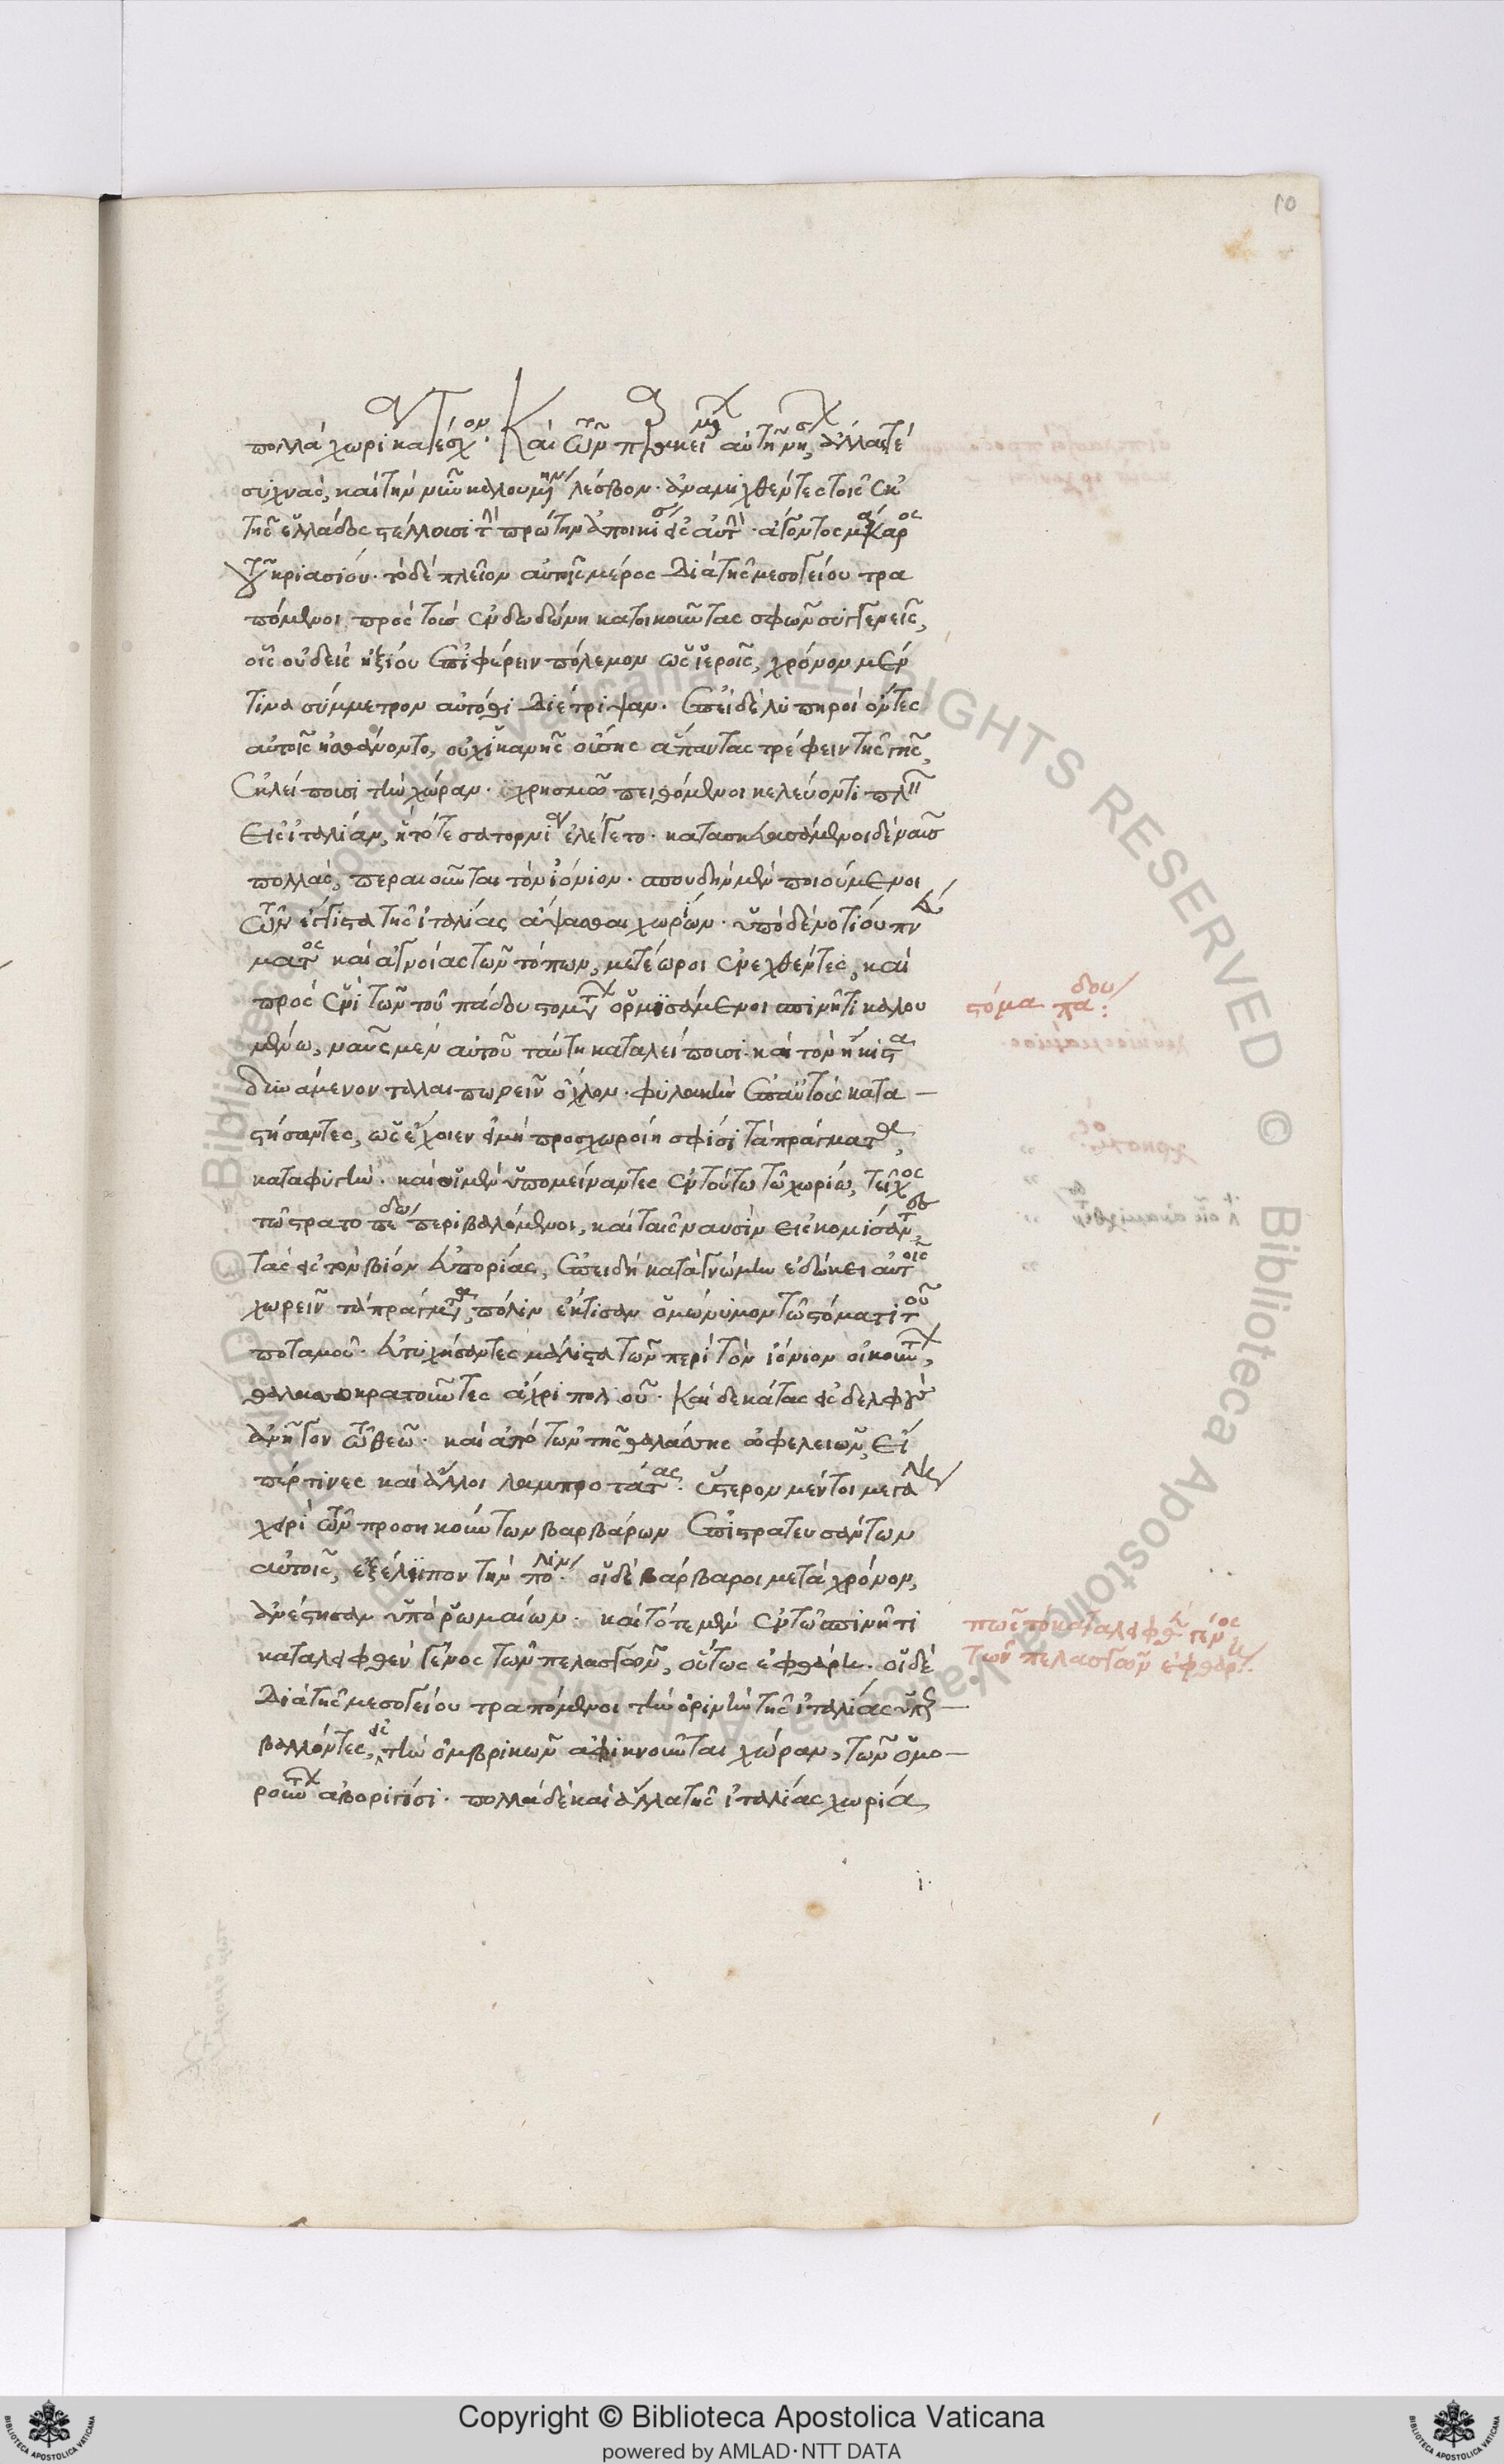 10
πολλὰ χωρία κατέσχον. καὶ τῶν προσκειμένων αὐτῇ νήσων, ἄλλας τὲ
συχνὰς, καὶ τὴν νῦν καλουμένην λέσβον. ἀναμιχθέντες τοῖς ἐκ
τῆς ἑλλάδος στέλλουσι τὴν πρώτην ἀποικίαν εἰς αὐτὴν. ἄγοντος μάκαρος
τοῦ κριασίου. τὸ δὲ πλεῖον αὐτῆς μέρος διὰ τῆς μεσογείου τρα
πόμενοι πρὸς τοὺς ἐν δωδώνη κατοικοῦντας σφῶν συγγενεῖς,
οἷς οὐδεὶς ἠξίου ἐπιφέρειν πόλεμον ὡς ἱεροῖς, χρόνον μὲν
τινα σύμμετρον αὐτόθι διέτριψαν. ἐπεὶ δὲ λυπηροὶ ὄντες
αὐτοῖς ἠσθάνοντο, οὐχ ἱκανῆς οὔσης ἅπαντας τρέφειν τῆς γῆς,
ἐκλείπουσι τὴν χώραν. χρησμῶ πειθόμενοι κελεύοντι πλεῖν
εἰς ἰταλίαν, ἣ τότε σατορνία ἐλέγετο. κατασκευασάμενοι δὲ ναῦς
πολλὰς, περαιοῦνται τὸν ἰόνιον. σπουδὴν μὲν ποιούμενοι
τῶν ἔγγιστα τῆς ἰταλίας ἅψασθαι χωρίων. ὑπὸ δὲ νοτίου πνεύ
ματος καὶ ἀγνοίας τῶν τόπων, μετέωροι ἐνεχθέντες, καὶ
πρὸς ἑνὶ τῶν τοῦ πάδου στομάτων ὁρμισάμενοι σπινῆτι καλου
μένω, ναῦς μὲν αὐτοῦ ταύτη καταλείπουσι. καὶ τὸν ἥκιστα
δυνάμενον ταλαιπωρεῖν ὄχλον. φυλακὴν ἐπ' αὐτοῖς κατα
στήσαντες, ὡς ἔχοιεν εἰ μὴ προσχωροίη σφίσι τὰ πράγματα,
καταφυγὴν. καὶ οἱ μὲν ὑπομείναντες ἐν τούτω τῶ χωρίω, τεῖχος
τῶ στρατοπέδω περιβαλόμενοι, καὶ ταῖς ναυσὶν εἰσκομίσαντες
τὰς εἰς τὸν βίον εὐπορίας, ἐπειδὴ κατὰ γνώμην ἐδόκει αὐτοῖς
χωρεῖν τὰ πράγματα, πόλιν ἔκτισαν ὁμώνυμον τῶ στόματι τοῦ
ποταμοῦ. εὐτυχήσαντες μάλιστα τῶν περὶ τὸν ἰόνιον οἰκούντων,
θαλασσοκρατοῦντες ἄχρι πολλοῦ. καὶ δεκάτας εἰς δελφοὺς
ἀνῆγον τῶ θεῶ. καὶ ἀπὸ τῶν τῆς θαλάσσης ὠφελειῶν, εἰ
πέρ τινες καὶ ἄλλοι λαμπροτάτας. ὕστερον μέντοι μεγάλη
χειρὶ τῶν προσηκούντων βαρβάρων ἐπιστρατευσάντων
αὐτοῖς, ἐξέλιπον τὴν πόλιν. οἱ δὲ βάρβαροι μετὰ χρόνον,
ἀνέστησαν ὑπὸ ῥωμαίων. καὶ τότε μὲν ἐν τῶ σπινῆτι
καταλειφθὲν γένος τῶν πελασγῶν, οὕτως ἐφθάρη. οἱ δὲ
διὰ τῆς μεσογείου τραπόμενοι τὴν ὀρινὴν τῆς ἰταλίας ὑπερ
βαλλόντες, εἰς τὴν ὀμβρικῶν ἀφικνοῦνται χώραν, τῶν ὁμο
ρούντων ἀβοριγίσι. πολλὰ δὲ καὶ ἄλλα τῆς ἰταλίας χωρία
στόμα πάδου:
πῶς τὸ καταλειφθὲν γένος
τῶν πελασγῶν ἐφθάρη.
ι.
© Biblioteca Apostolica Vaticana ALL RIGHTS RESERVED
Copyright © Biblioteca Apostolica Vaticana
powered by AMLAD·NTT DATA